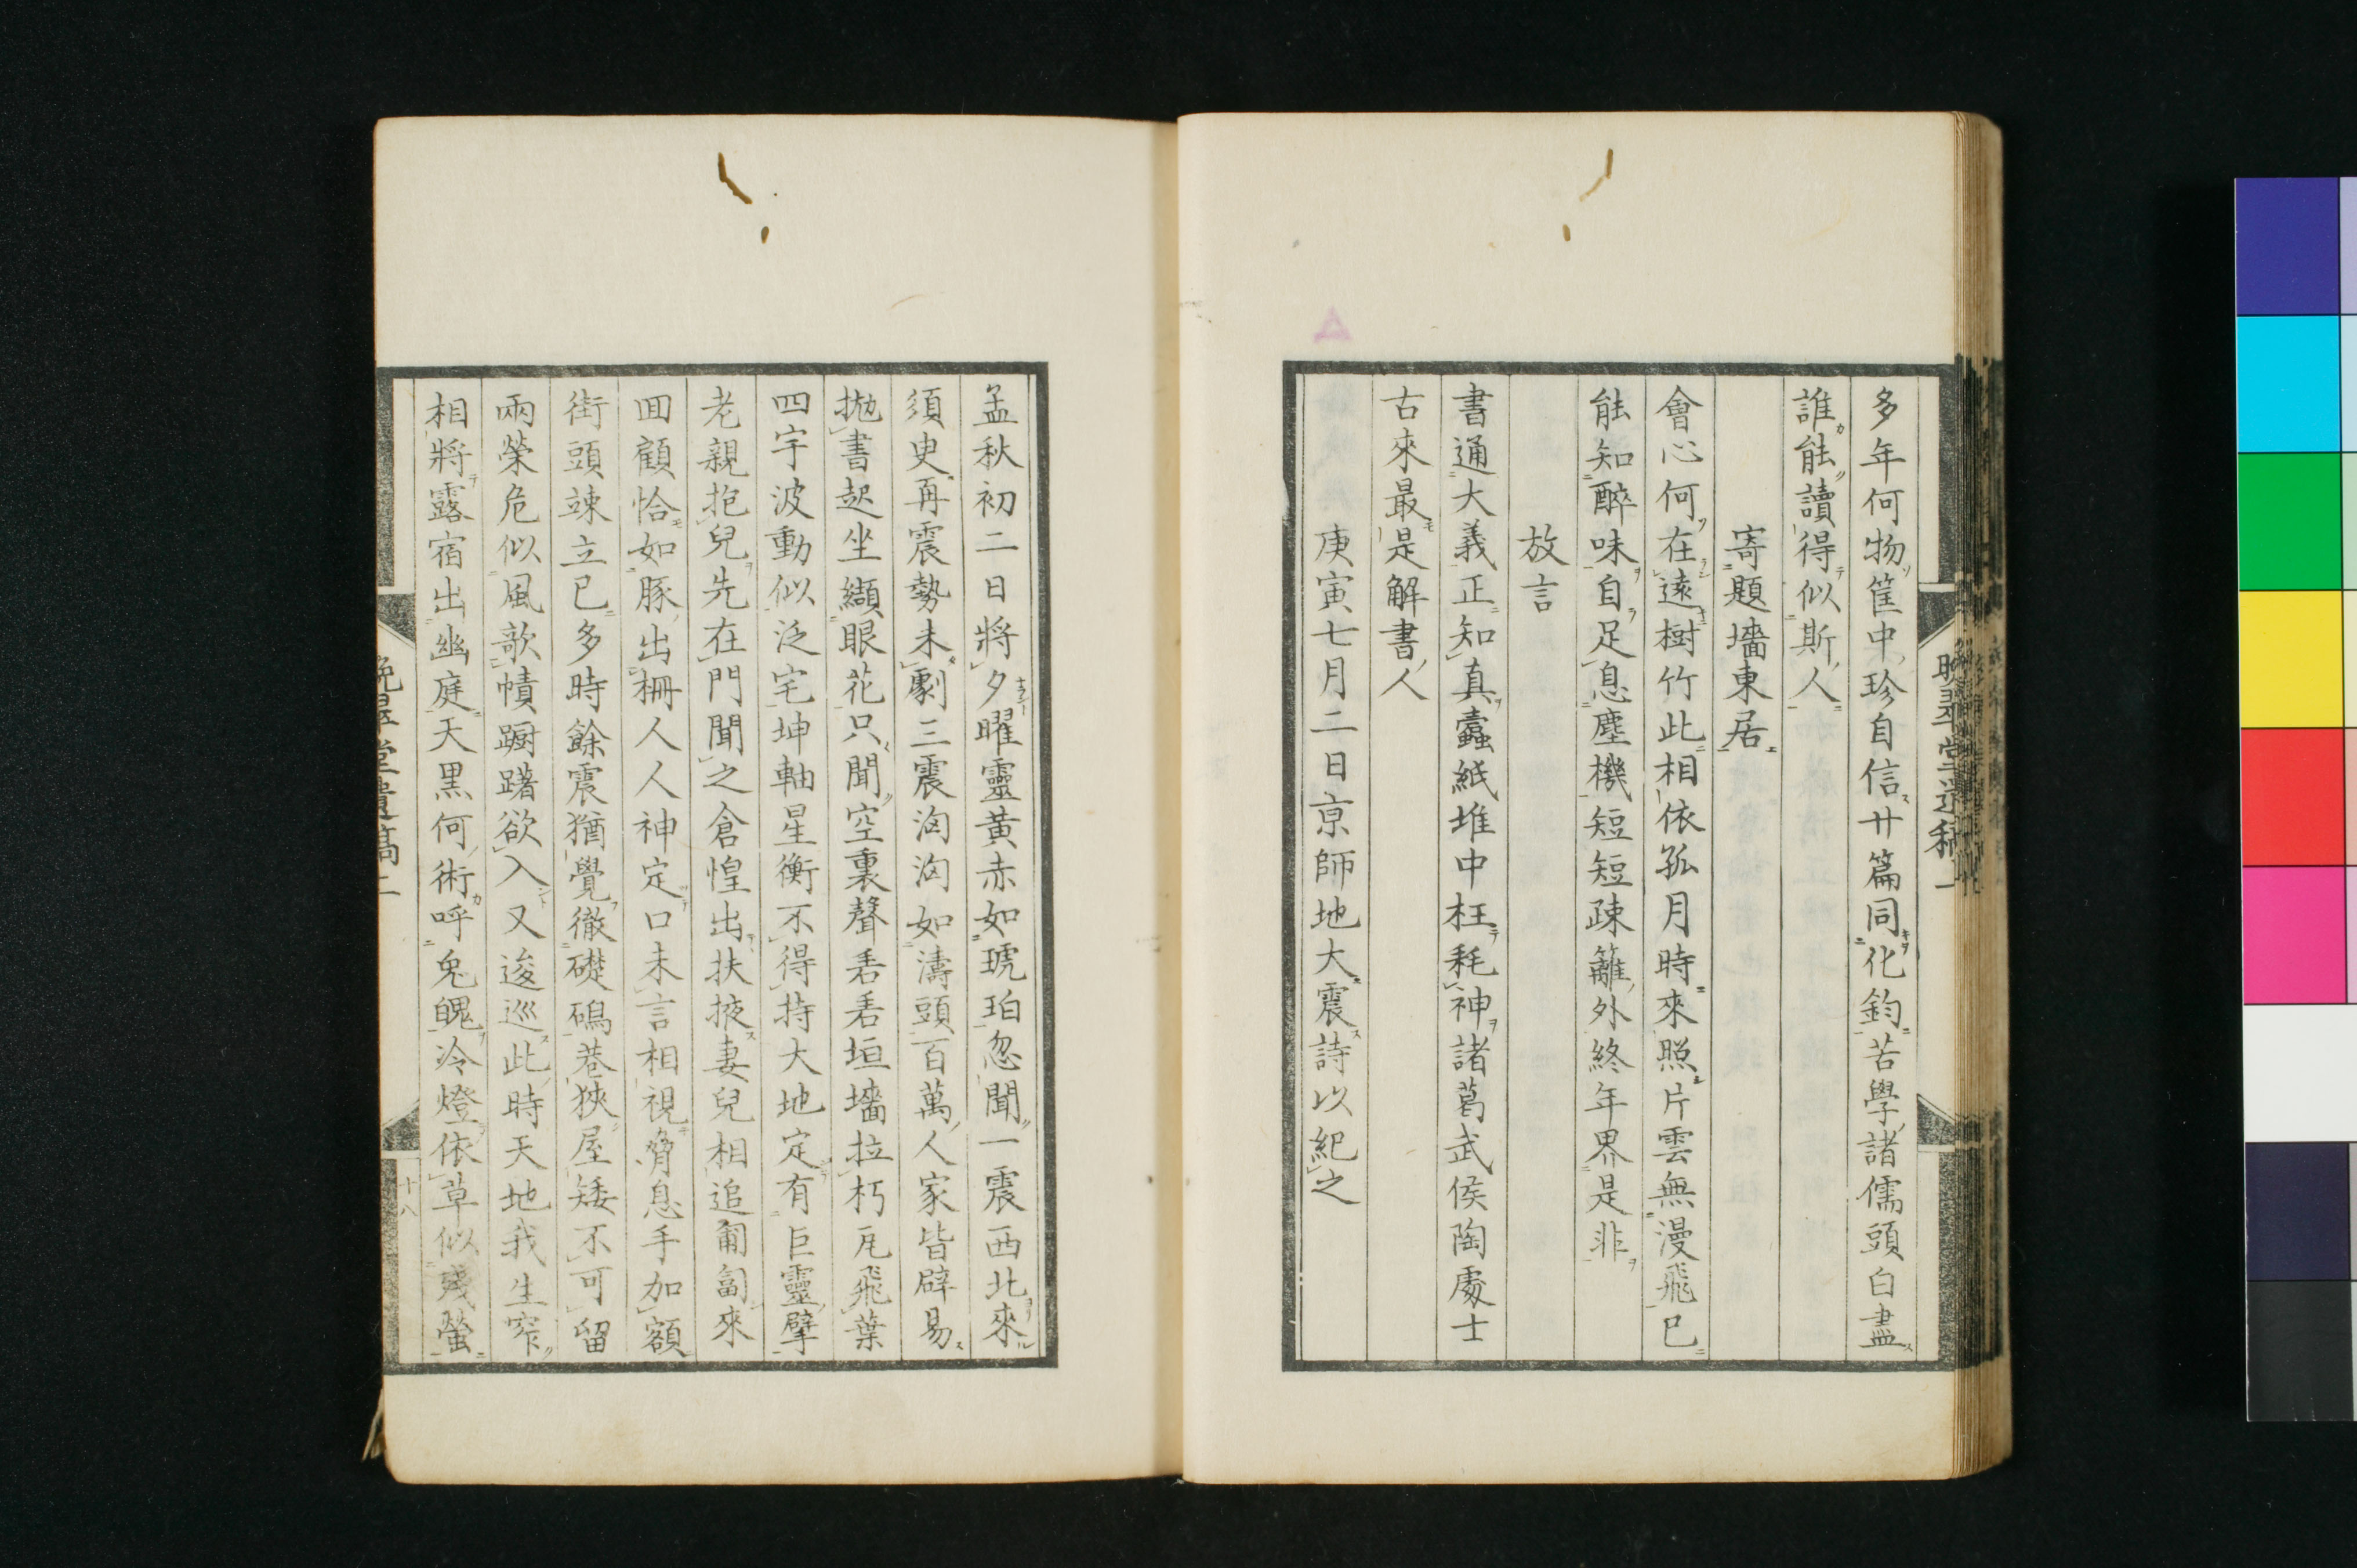 多年何物筐中珍自信廿篇同化鈞苦學諸儒頭白盡
誰能讀得似斯人
寄題墻東居
會心何在遠樹竹此相依孤月時來照片雲無漫飛已
能知醉味自足息塵機短短疎籬外終年界是非
放言
書通大義正知真蠹紙堆中枉耗神諸葛武侯陶處士
古來最是解書人
庚寅七月二日亰師地大震詩以紀之
孟秋初二日將夕曜靈黃赤如琥珀忽聞一震西北來
須臾再震勢未劇三震洶洶如濤頭百萬人家皆辟易
拋書起坐纈眼花只聞空裏聲砉砉垣墻拉朽瓦飛葉
四宇波動似泛宅坤軸星衡不得持大地定有巨靈擘
老親抱兒先在門聞之倉惶出扶掖妻兒相追匍匐來
回顧恰如豚出柵人人神定口未言相視脅息手加額
街頭竦立已多時餘震猶覺徹礎碣巷狹屋矮不可留
兩榮危似風歌幘躕躇欲入又逡巡此時天地我生窄
相將露宿出幽庭天黑何術呼兔魄冷燈依草似殘螢
晚翠堂遺稿
十八